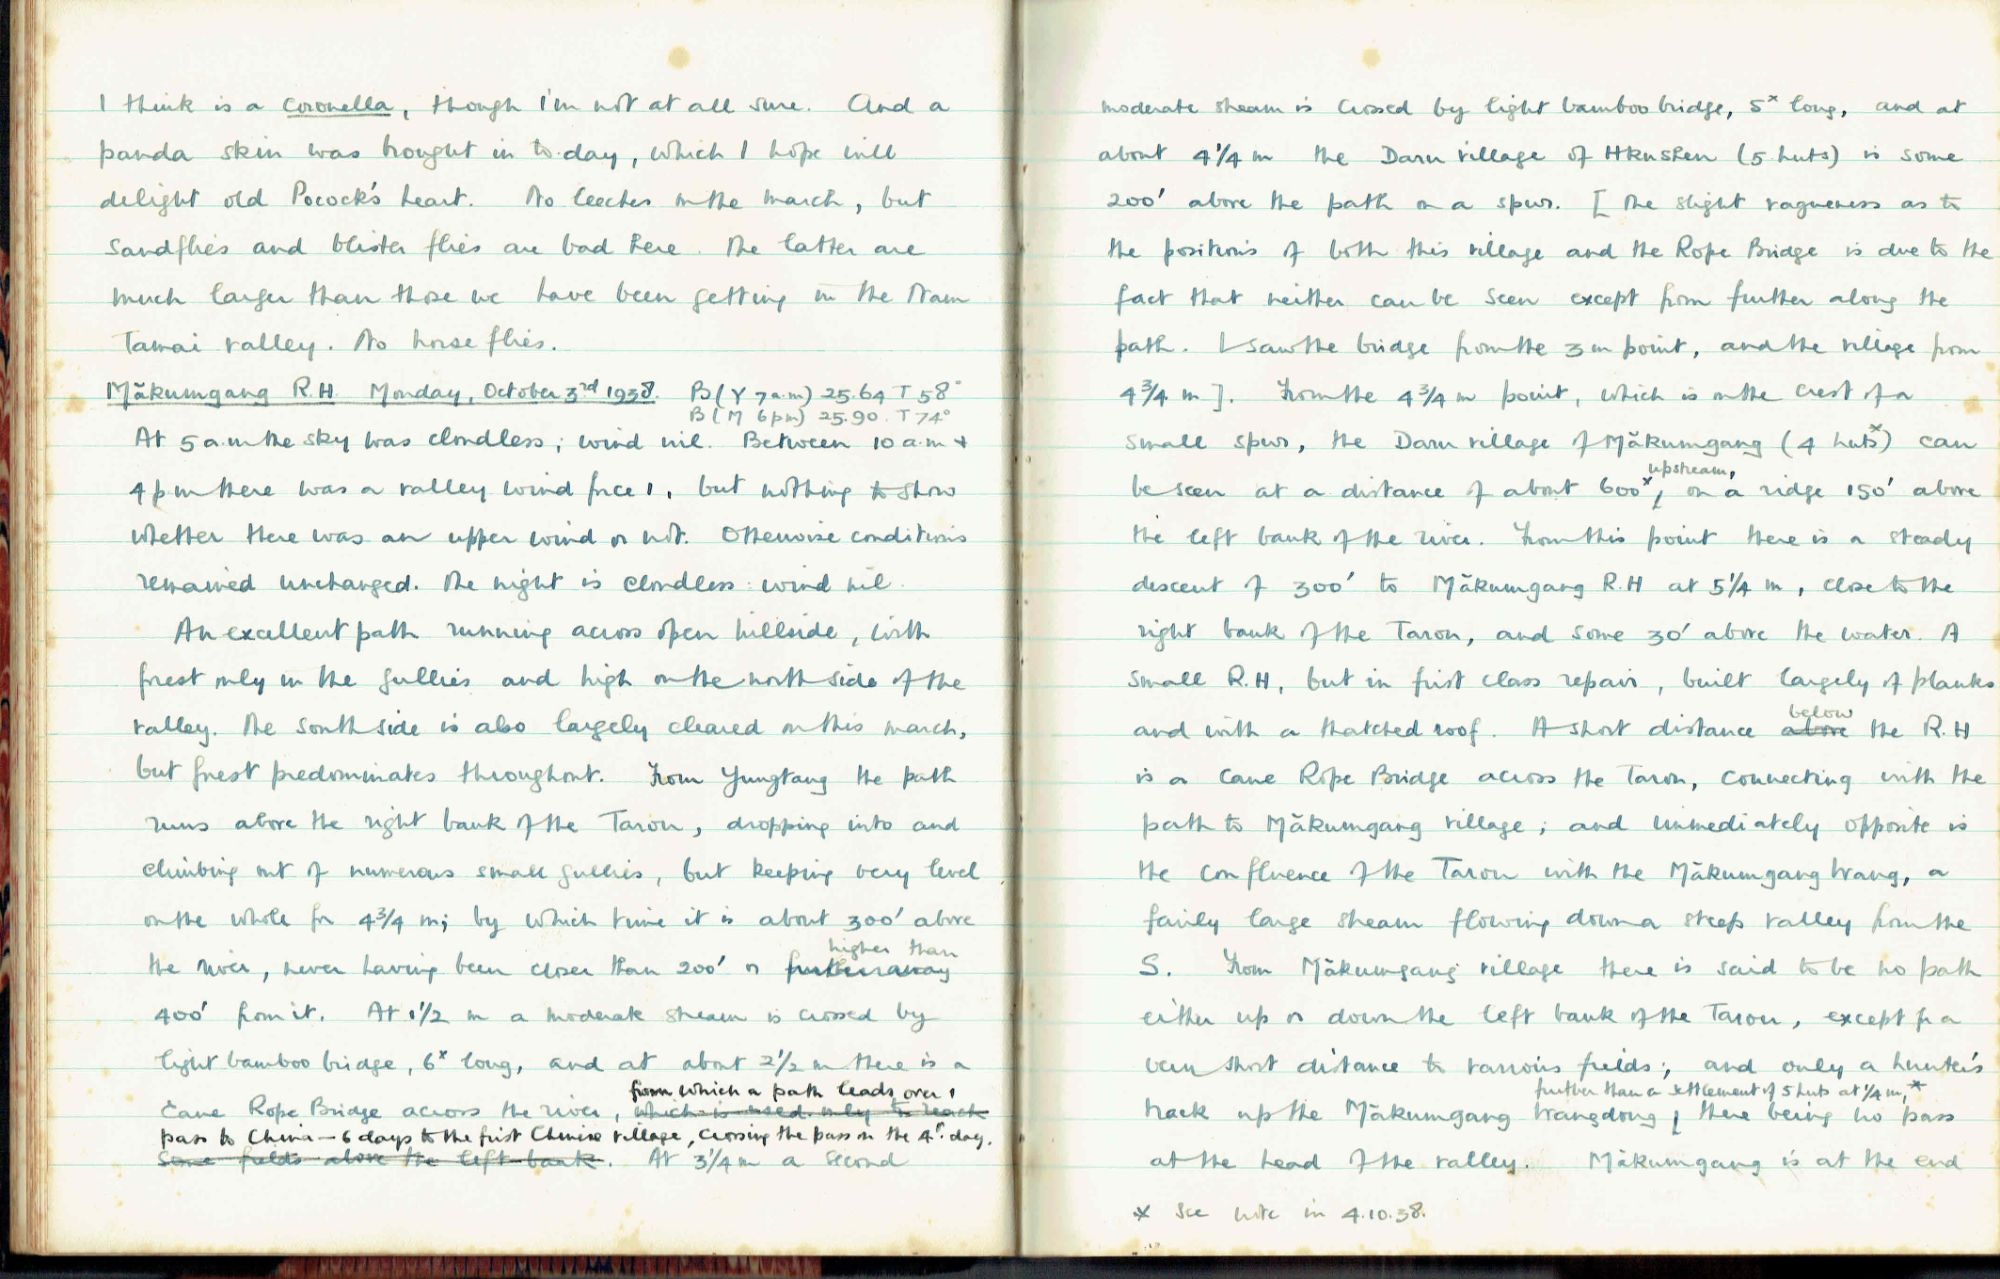 I think is a Coronella, though I'm not at all sure. And a
panda skin was brought in to-day, which I hope will
delight old Pocock's heart. No leeches on the march, but
sandflies and blister flies are bad here. The latter are
much larger than those we have been getting in the Nam
Tamai valley. No horse flies.
Mākumgang R.H. Monday, October 3rd 1938. B (Y 7 a.m) 25.64 T 58°
B (M 6 pm) 25.90. T 74°
At 5 a.m the sky was cloudless; wind nil. Between 10 a.m +
4 pm there was a valley wind force 1, but nothing to show
whether there was an upper wind or not. Otherwise conditions
remained unchanged. The night is cloudless: wind nil.
An excellent path running across open hillside, with
forest only in the gullies and high on the north side of the
valley. The south side is also largely cleared on this march,
but forest predominates throughout. From Yungtang the path
runs above the right bank of the Taron, dropping into and
climbing out of numerous small gullies, but keeping very level
on the whole for 4¾ m; by which time it is about 300' above
higher than
the river, never having been closer than 200' or further away
400' from it. At 1½ m a moderate stream is crossed by
light bamboo bridge, 6ˣ long, and at about 2½ m there is a
from which a path leads over 1
Cane Rope Bridge across the river, which is used only to reach
pass to China – 6 days to the first Chinese village, crossing the pass on the 4th day.
some fields above the left bank. At 3¼ m a second
moderate stream is crossed by light bamboo bridge, 5ˣ long, and at
about 4¼ m the Daru village of Hkushen (5 huts) is some
200' above the path on a spur. [The slight vagueness as to
the positions of both this village and the Rope Bridge is due to the
fact that neither can be seen except from further along the
path. I saw the bridge from the 3 m point, and the village from
4¾ m]. From the 4¾ m point, which is on the crest of a
small spur, the Daru village of Mākumgang (4 huts*) can
upstream,
be seen at a distance of about 600ˣ, on a ridge 150' above
the left bank of the river. From this point there is a steady
descent of 300' to Mākumgang R.H at 5¼ m, close to the
right bank of the Taron, and some 30' above the water. A
small R.H, but in first class repair, built largely of planks
below
and with a thatched roof. A short distance above the R.H
is a Cane Rope Bridge across the Taron, connecting with the
path to Mākumgang village; and immediately opposite is
the confluence of the Taron with the Mākumgang Wang, a
fairly large stream flowing down a steep valley from the
S. From Mākumgang village there is said to be no path
either up or down the left bank of the Taron, except for a
very short distance to various fields; and only a hunter's
further than a settlement of 5 huts at ¼ m,*
track up the Mākumgang Wangdong, there being no pass
at the head of the valley. Mākumgang is at the end
* See note in 4.10.38.